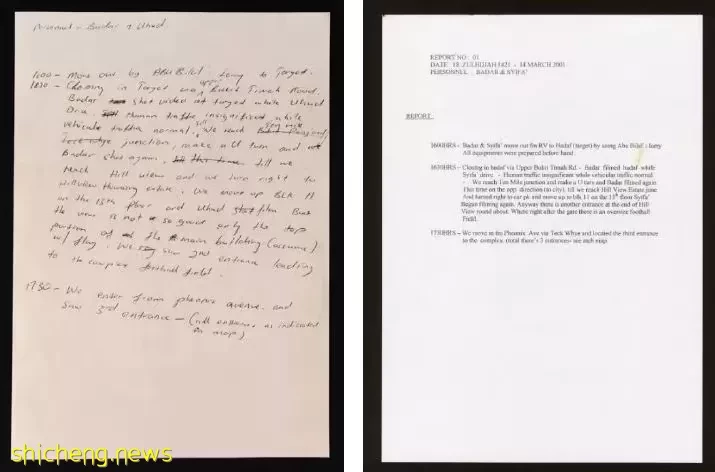 Personnel - Badar & Uhud
1600 - Move out by Abu Bilal lorry to Target.
1630 - Closing in Target via upper Bukit Timah Road.
Badar shot video of target while Uhud
Drive. Human traffic insignificant while
vehicular traffic normal. We reach
junction, make a U turn and
Badar shot again. till we
reach Hill view and we turn right to
Hillview Housing estate. We move up Blk 11
on the 15th floor and Uhud film. But
the view is not so good only the top
portion of the main building (
w/ flag. We saw 2nd entrance leading
to the complex football field.
1730 - We enter from phoenix avenue and
saw 3rd entrance - (all entrance as indicated
on map)
REPORT NO : 01
DATE : 18 ZULHIJJAH 1421 - 14 MARCH 2001
PERSONNEL : BADAR & SYIFA'
REPORT
1600HRS – Badar & Syifa' move out fm RV to Hadaf (target) by using Abu Bilal's lorry
All equipments were prepared before hand.
1630HRS – Closing in hadaf via Upper Bukit Timah Rd - Badar filmed hadaf while
Syifa' drive - Human traffic insignificant while vehicular traffic normal
- We reach Ten Mile junction and make a U turn and Badar filmed again
This time on the opp direction (to city), till we reach Hill View Estate junc
And turned right to car pk and move up to blk 11 on the 15th floor Syifa'
Began filming again. Anyway there is another entrance at the end of Hill
View round about. Where right after the gate there is an oversize football
Field.
1730HRS – We move in fm Phoenix Ave via Teck Whye and located the third entrance
to the complex. (total there's 3 entrances- see met map
shicheng.news